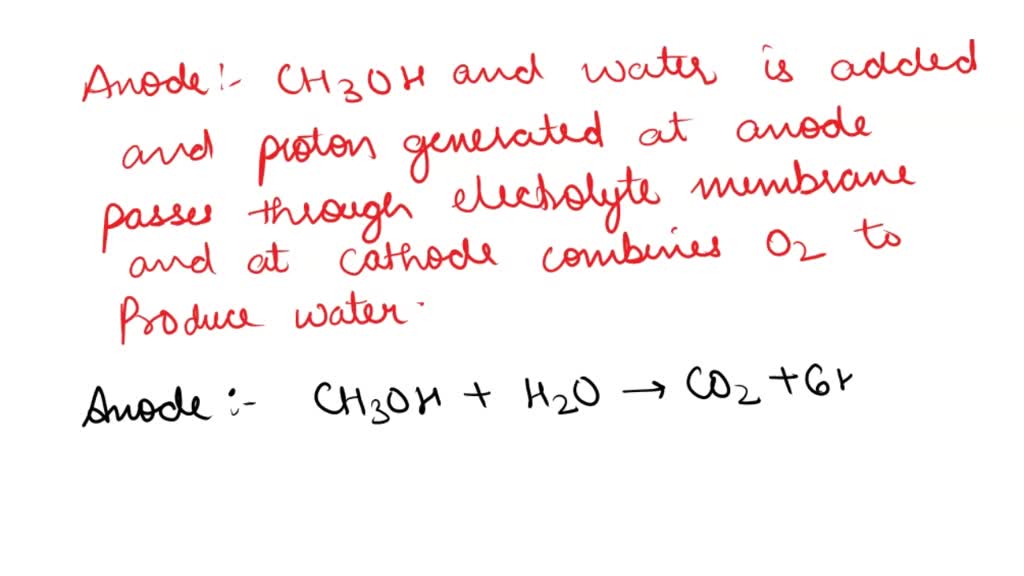 Anode:- CH3OH and water is added
and proton generated at anode
passes through electrolyte membrane
and at cathode combines O2 to
Produce water.
Anode:- CH3OH + H2O → CO2 + 6